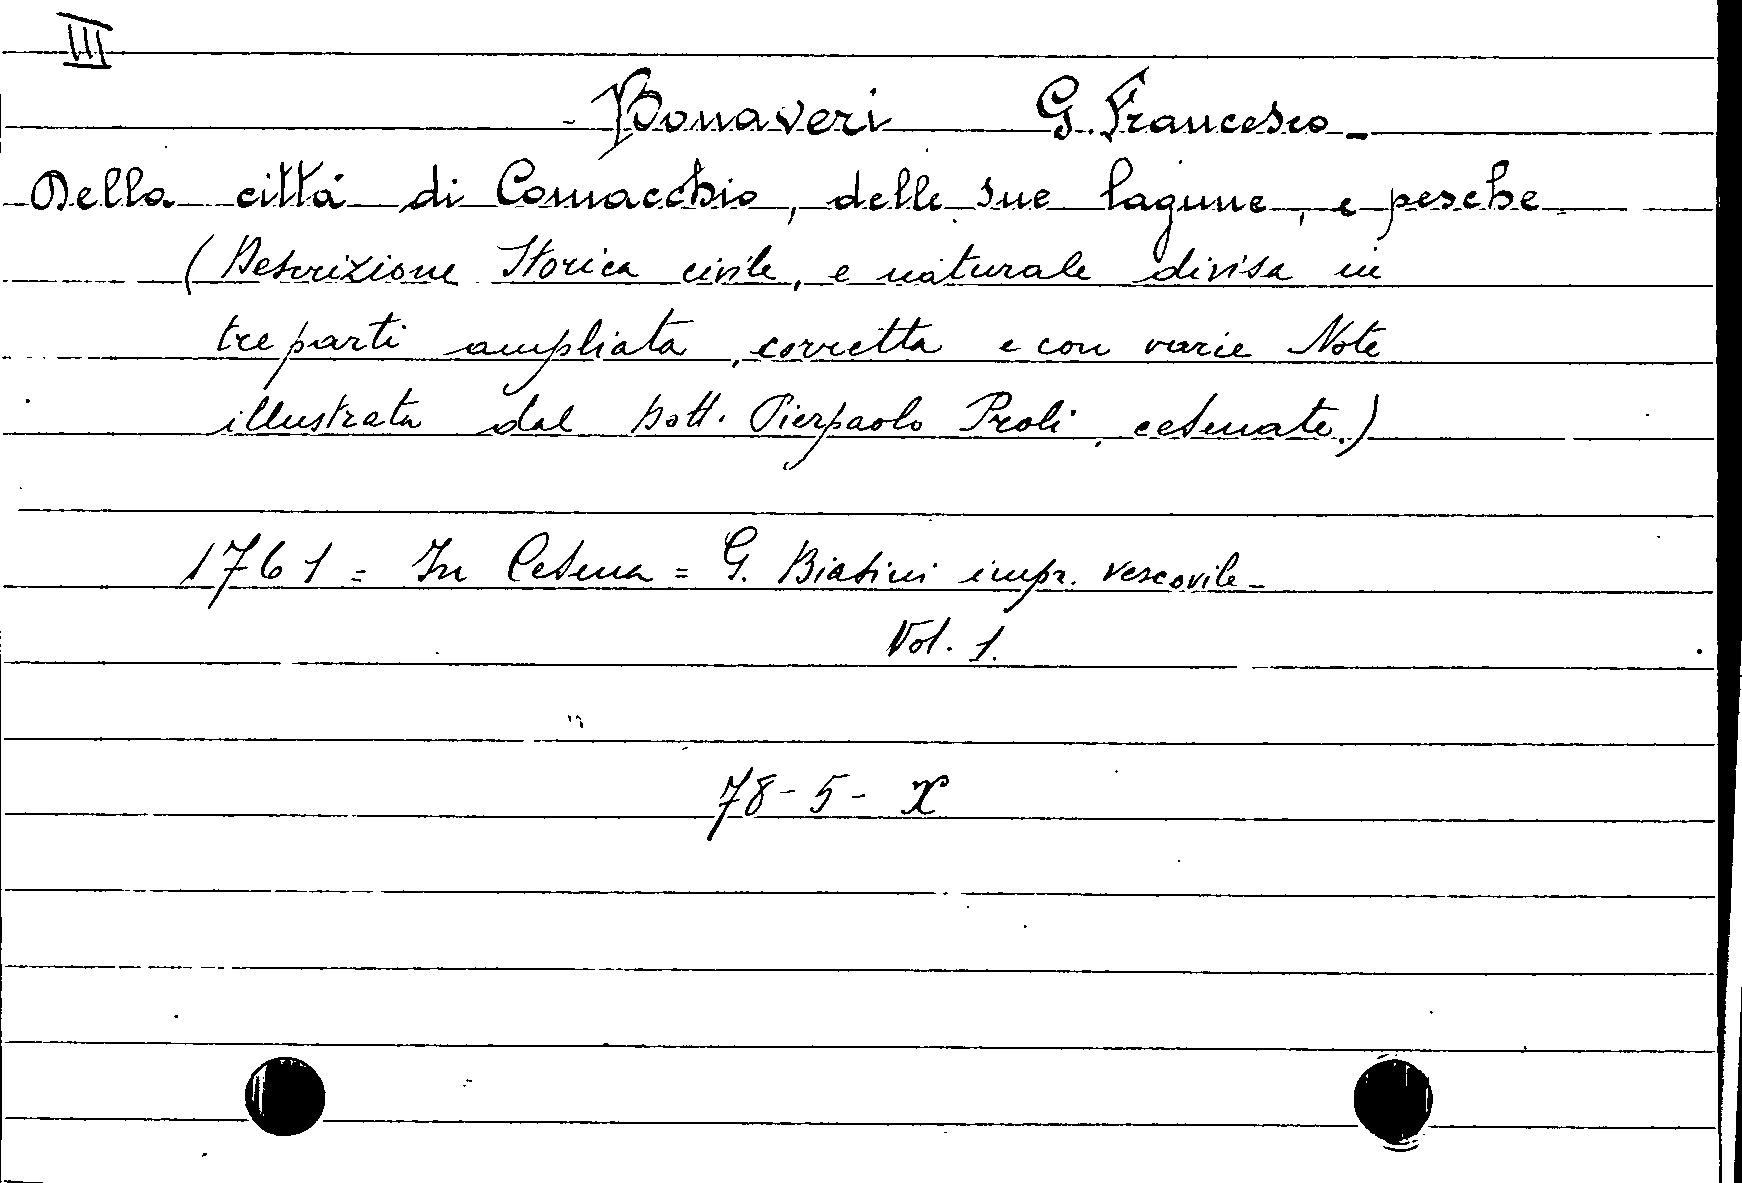 III
- Bonaveri G. Francesco -
Della cittá di Comacchio, delle sue lagune, e pesche
(Descrizione Storica civile, e naturale divisa in
tre parti ampliata, corretta e con varie Note
illustrata dal Dott. Pierpaolo Proli, cesenate.)
1761 = In Cesena = G. Biasini impr. vescovile -
Vol. 1.
78 - 5 - X